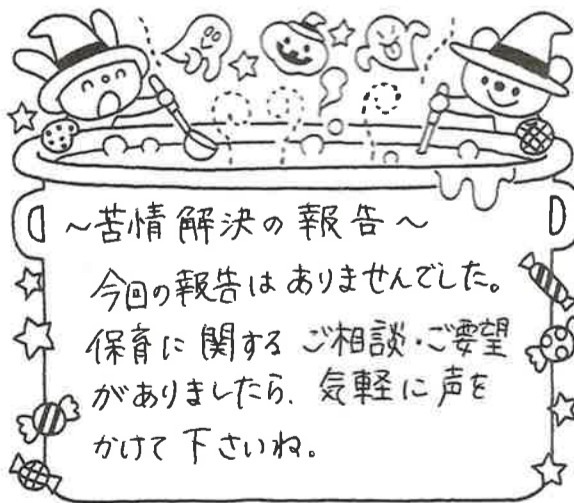 ～苦情解決の報告～
今回の報告はありませんでした。
保育に関するご相談・ご要望
がありましたら、気軽に声を
かけて下さいね。